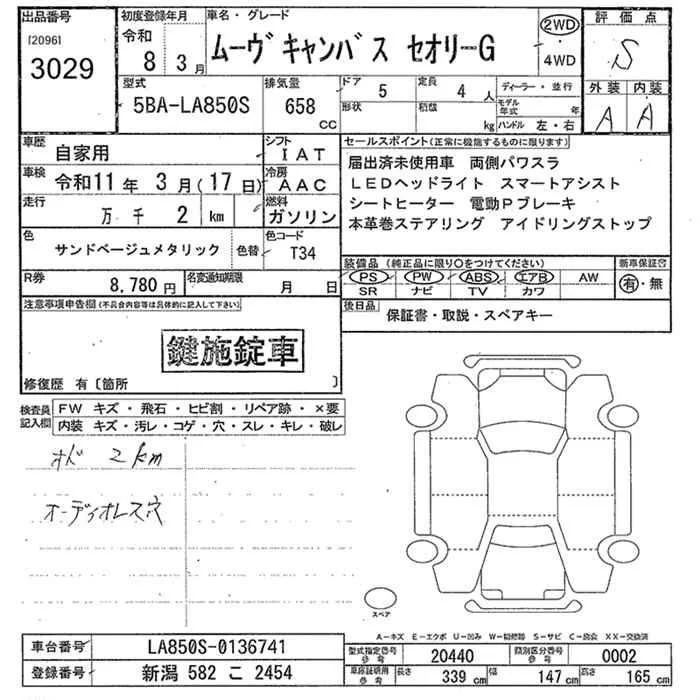 出品番号
[2096]
3029
初度登録年月
令和
8 3 月
車名・グレード
ムーヴキャンバス セオリーG
2WD
4WD
評価点
S
外装 内装
A A
型式
5BA-LA850S
排気量
658
CC
ドア
5
形状
定員
4 人
積載
kg
ディーラー・並行
モデル年式 年
ハンドル 左・右
車歴
自家用
シフト
IAT
車検
令和11年 3月(17日)
冷房
AAC
走行
万 千 2 km
燃料
ガソリン
色
サンドベージュメタリック
色替
色コード
T34
R券
8,780 円
名変通知期限
月 日
セールスポイント(正常に機能するものに限ります)
届出済未使用車 両側パワスラ
LEDヘッドライト スマートアシスト
シートヒーター 電動Pブレーキ
本革巻ステアリング アイドリングストップ
装備品(純正品に限り○をつけてください)
PS PW ABS エアB AW
SR ナビ TV カワ
新車保証書
有・無
後日品
保証書・取説・スペアキー
注意事項申告欄(不具合内容等は具体的に記入して下さい)
鍵施錠車
修復歴 有〔箇所 〕
検査員記入欄
FW キズ・飛石・ヒビ割・リペア跡・×要
内装 キズ・汚レ・コゲ・穴・スレ・キレ・破レ
オド 2km
オーディオレス穴
スペア
A−キズ E−エクボ U−凹み W−補修跡 S−サビ C−腐食 XX−交換済
車台番号
LA850S-0136741
登録番号
新潟 582 こ 2454
型式指定番号
参考
20440
類別区分番号
参考
0002
車庫証明用
参考
長さ
339 cm
幅
147 cm
高さ
165 cm